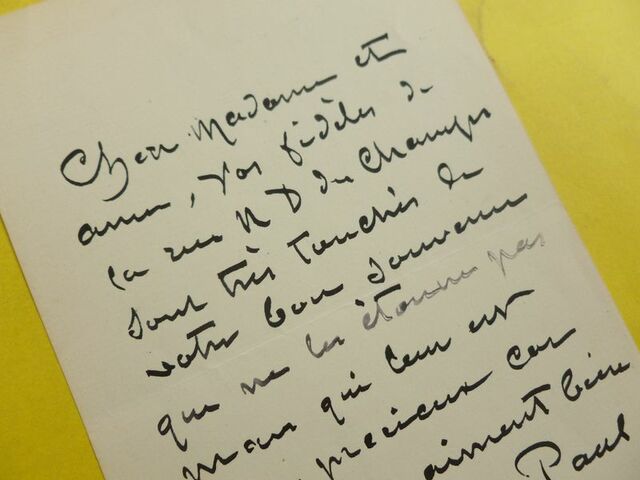 Chère Madame et
amie, vos fidèles de
la rue N D des Champs
sont très touchés de
votre bon souvenir
qui ne les étonne pas
mais qui leur est
précieux car
aiment bien
Paul